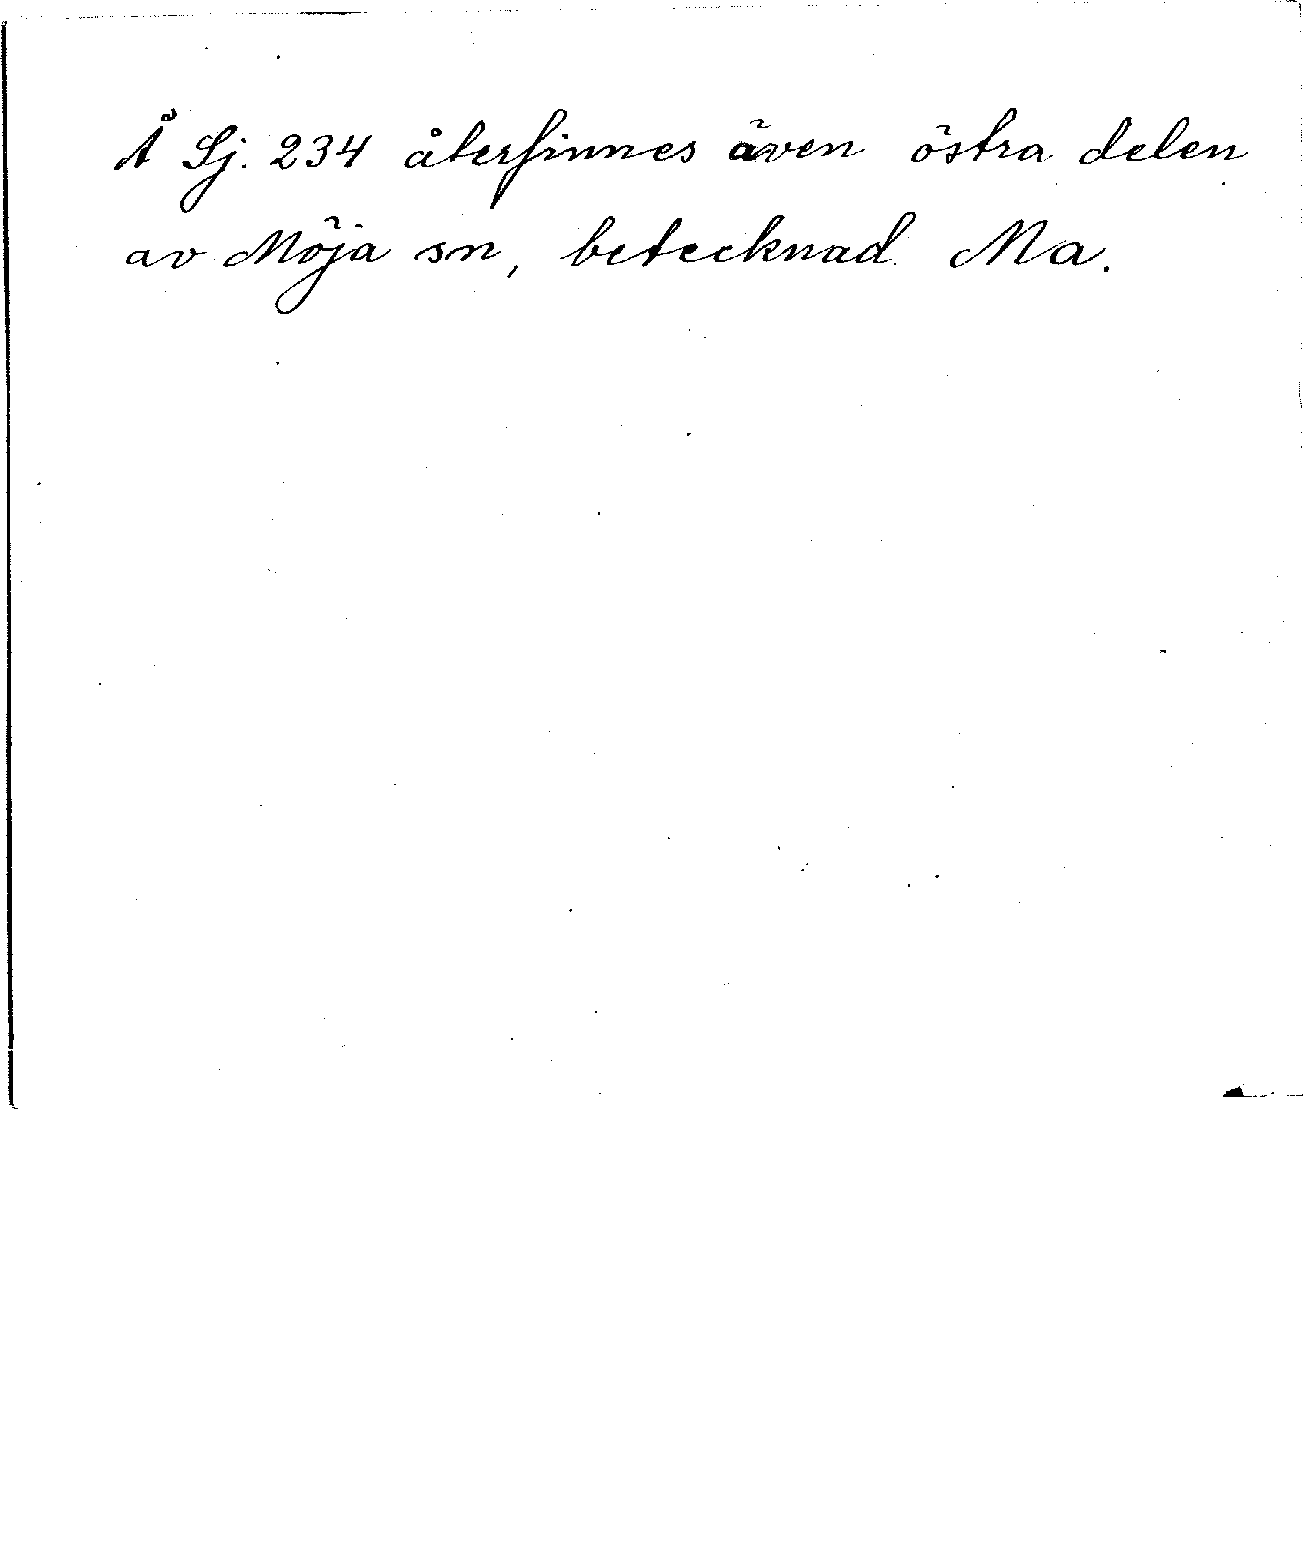 Å Sj. 234 återfinnes även östra delen
av Möja sn, betecknad Ma.